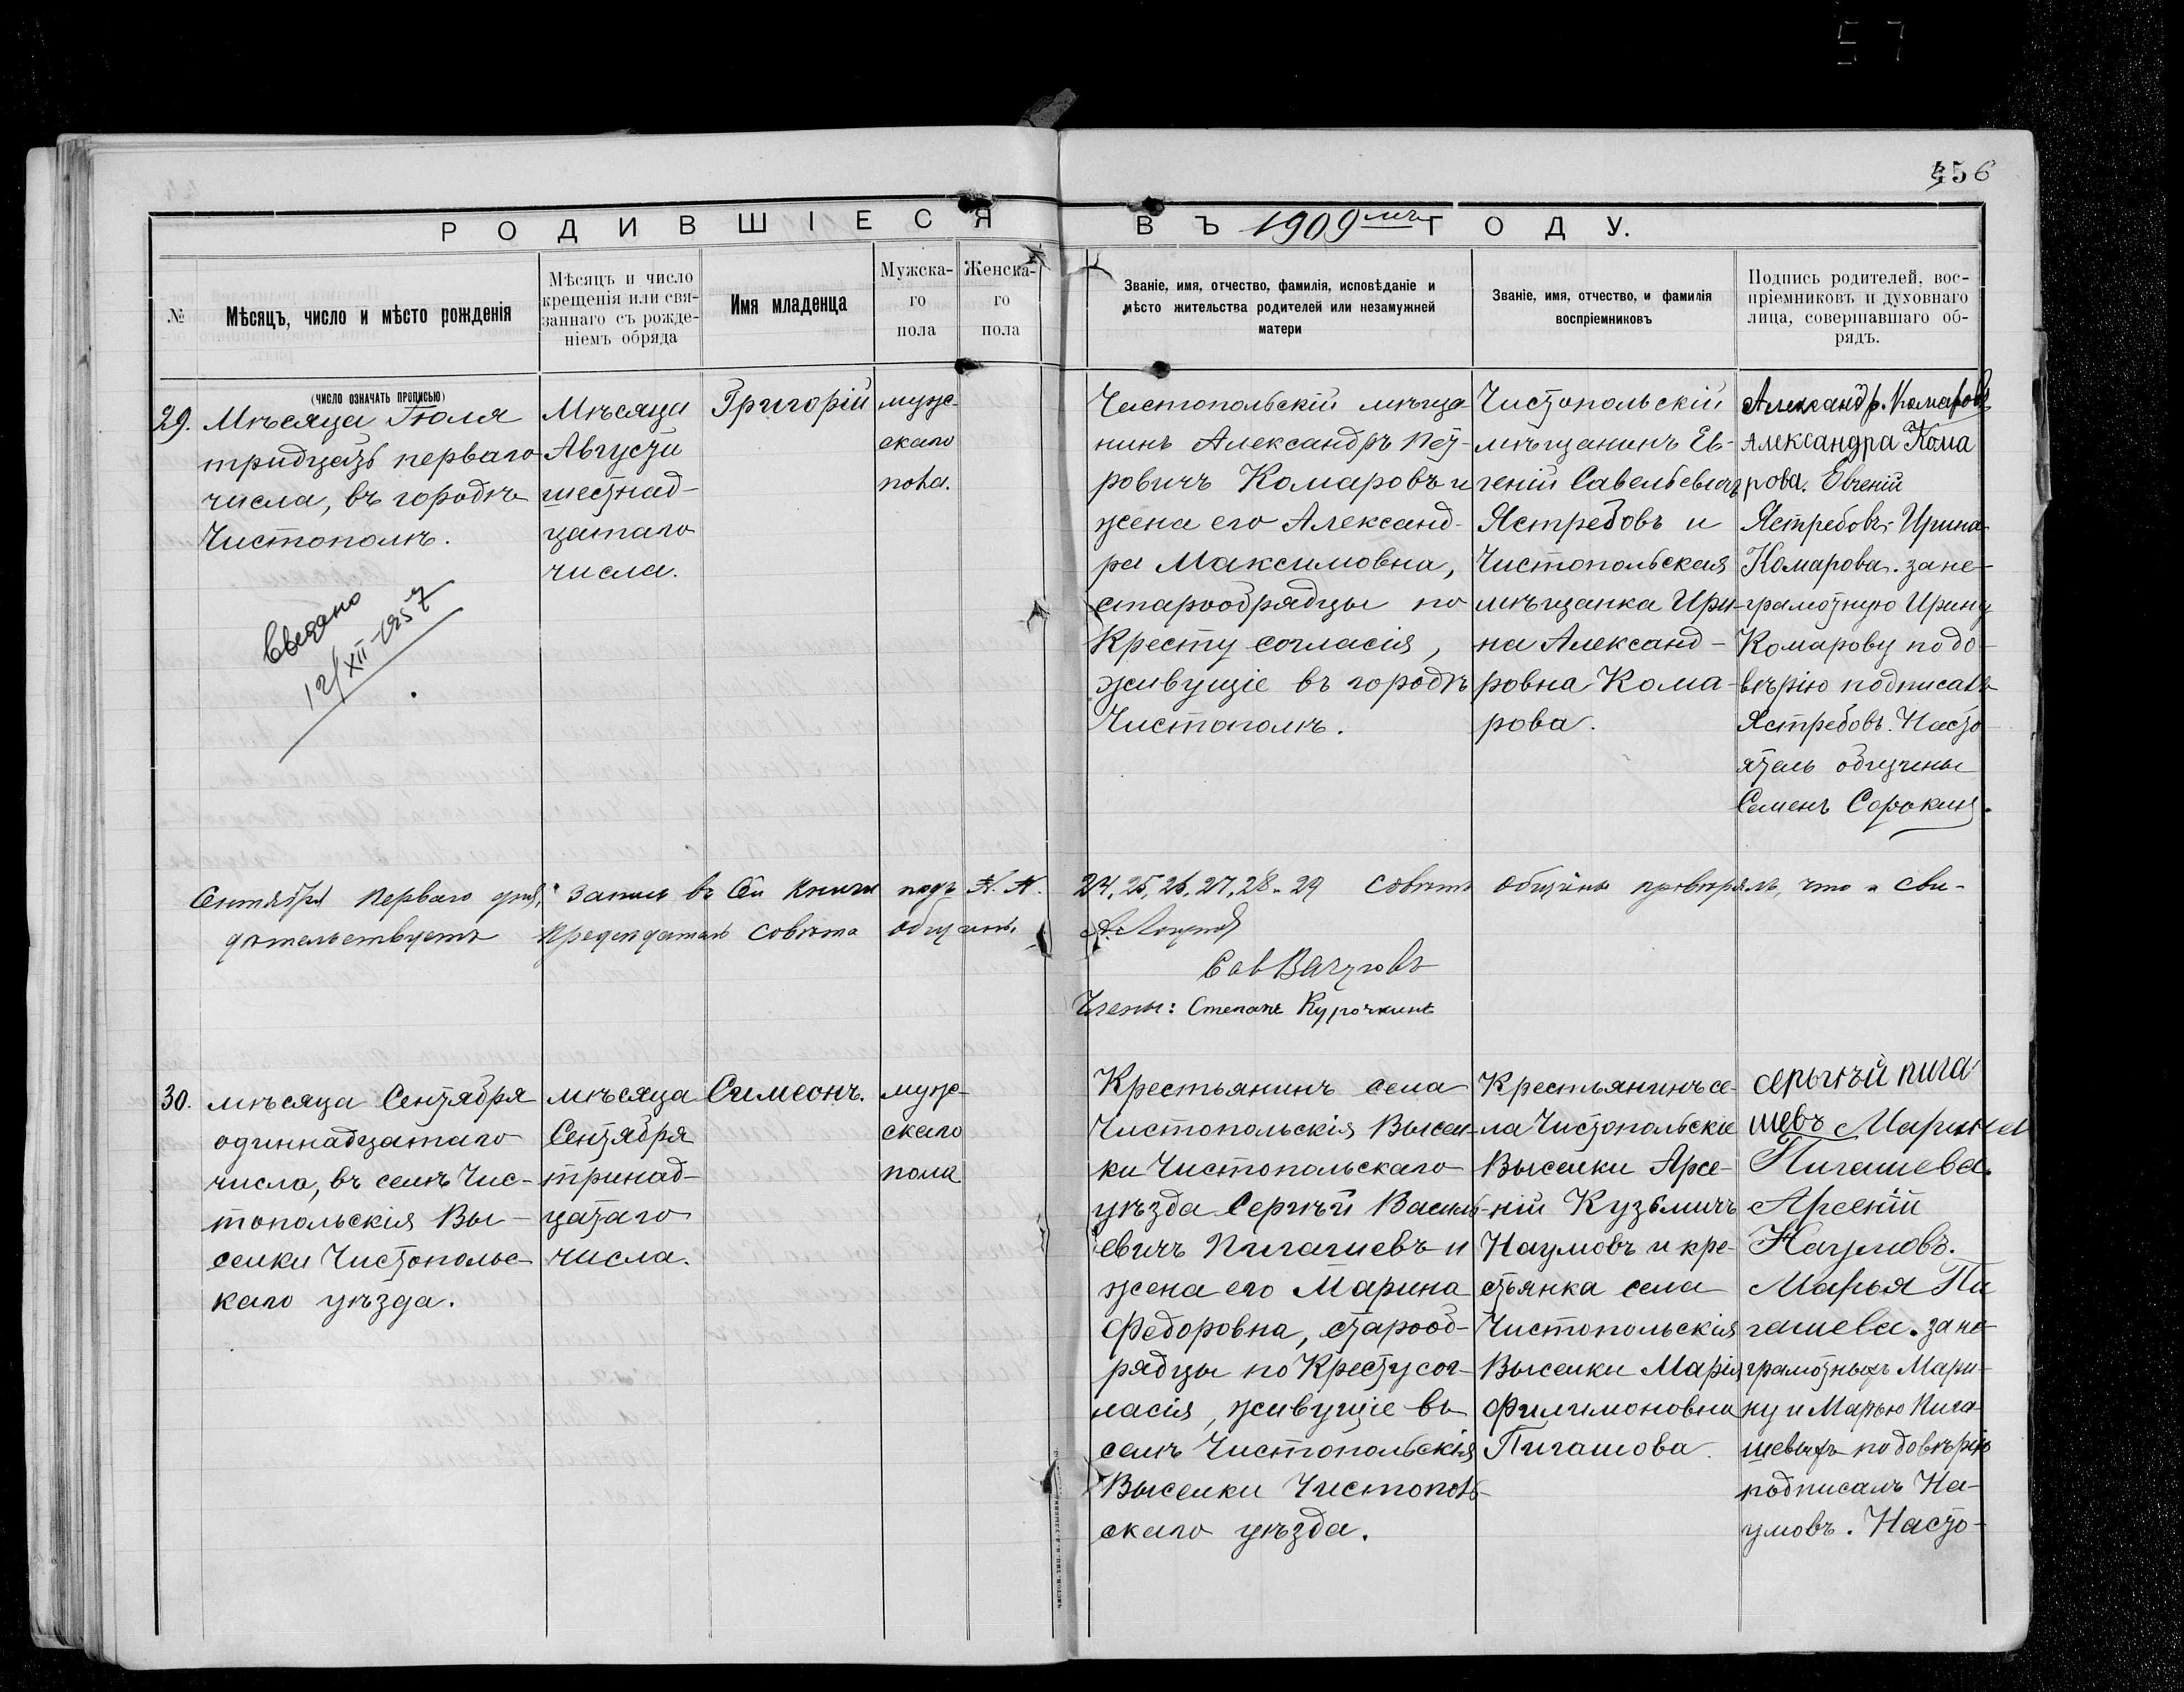 57
456
РОДИВШІЕСЯ ВЪ 1909мъ ГОДУ.
№
Мѣсяцъ, число и мѣсто рожденія
Мѣсяцъ и число
крещенія или свя-
заннаго съ рожде-
ніемъ обряда
Имя младенца
Мужска-
го
пола
Женска-
го
пола
Званіе, имя, отчество, фамилія, исповѣданіе и
мѣсто жительства родителей или незамужней
матери
Званіе, имя, отчество, и фамилія
воспріемниковъ
Подпись родителей, вос-
пріемниковъ и духовнаго
лица, совершавшаго об-
рядъ.
(ЧИСЛО ОЗНАЧАТЬ ПРОПИСЬЮ)
29.
Мѣсяца Іюля
тридцать перваго
числа, въ городѣ
Чистополѣ.
12/XII-1957
Мѣсяца
Августа
шестнад-
цатаго
числа.
Григорій
муж-
скаго
пола.
Чистопольскій мѣща-
нинъ Александръ Пет-
ровичъ Комаровъ и
жена его Александ-
ра Максимовна,
старообрядцы по
Кресту согласія,
живущіе въ городѣ
Чистополѣ.
Чистопольскій
мѣщанинъ Ев-
геній Савельевичъ
Ястребовъ и
Чистопольская
мѣщанка Ири-
на Александ-
ровна Кома-
рова.
Александр. Комаровъ
Александра Кома
рова. Евгеній
Ястребовъ Ирина
Комарова. за не-
грамотную Ирину
Комарову по до-
вѣрію подписалъ
Ястребовъ. Насто-
ятель общины
Семенъ Сорокинъ.
Сентября Перваго дня, Запись въ Сей Книги подъ N. N. 24, 25, 26, 27, 28 и 29 Совѣтъ общины провѣрялъ, что и сви-
дѣтельствуетъ Предсѣдатель Совѣта общины,
Сав Вачуговъ
Члены: Степанъ Курочкинъ
30.
мѣсяца Сентября
одиннадцатаго
числа, въ селѣ Чис-
топольскія Вы-
селки Чистопольс-
каго уѣзда.
мѣсяца
Сентября
тринад-
цатаго
числа.
Симеонъ.
муж-
скаго
пола
Крестьянинъ села
Чистопольскія Высел-
ки Чистопольскаго
уѣзда Сергѣй Василь-
евичъ Пигашевъ и
жена его Марина
Федоровна, старооб-
рядцы по Кресту сог-
ласія, живущіе въ
селѣ Чистопольскія
Выселки Чистополь-
скаго уѣзда.
Крестьянинъ се-
ла Чистопольскіе
Выселки Арсе-
ній Кузьмичъ
Наумовъ и кре-
стьянка села
Чистопольскія
Выселки Марія
Филимоновна
Пигашова.
серьгѣй пига
шевъ Марина
Пигашева.
Арсеній
Наумовъ.
Марья Пи
гашева. за не-
грамотныхъ Мари-
ну и Марью Пига-
шевыхъ по довѣрію
подписалъ На-
умовъ. Насто-